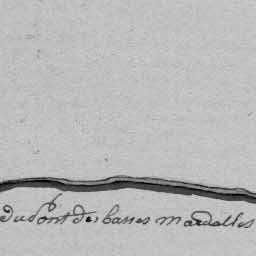 du dont des basses mardelles